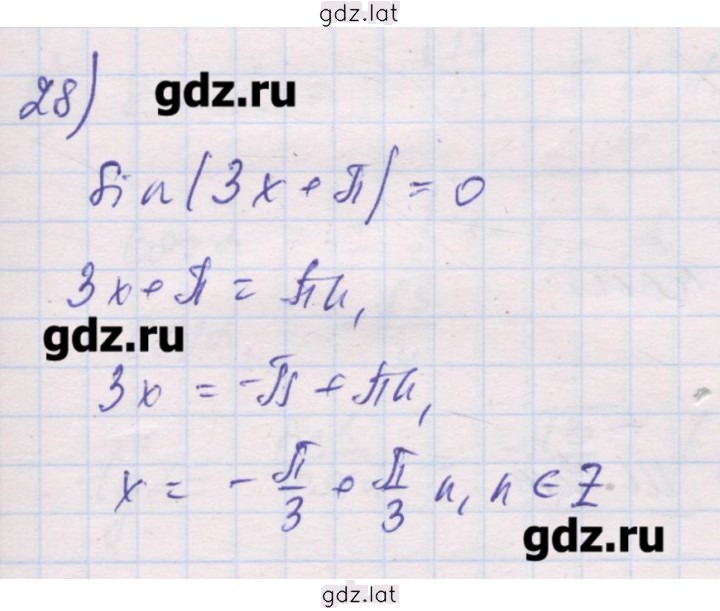 gdz.lat
28) gdz.ru
sin(3x + π) = 0
3x + π = πn,
gdz.ru
3x = -π + πn,
x = - π/3 + π/3 n, n ∈ Z
gdz.ru
gdz.lat